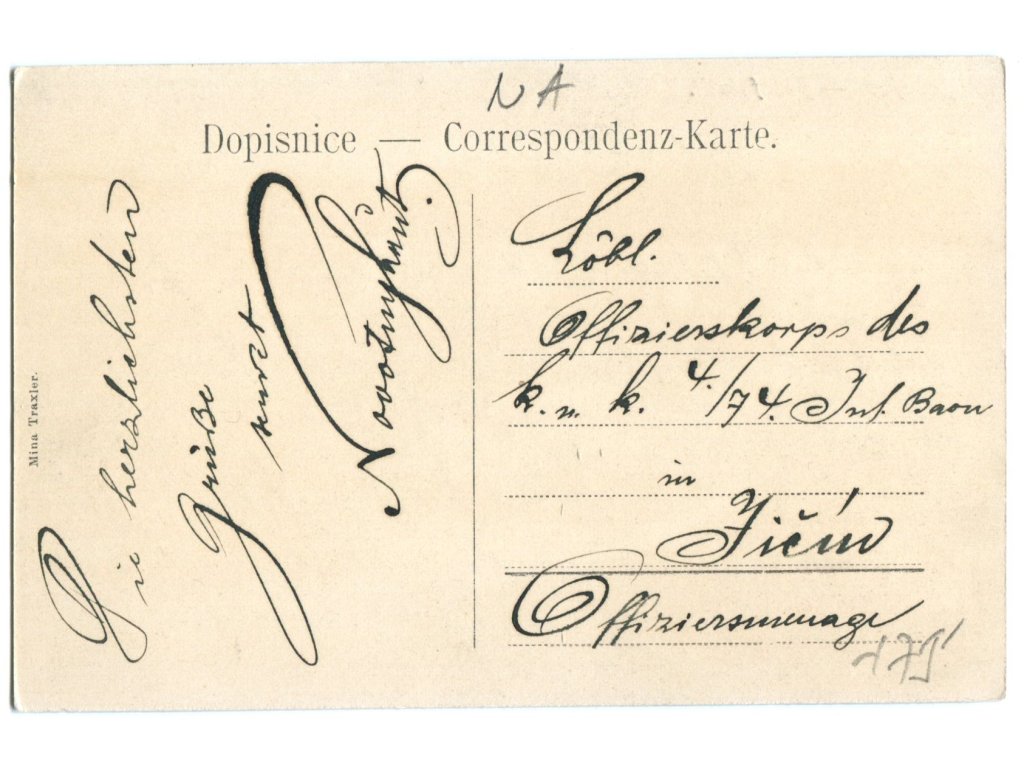 NA
Dopisnice — Correspondenz-Karte.
Mina Traxler.
Die herzlichsten
Grüße
Löbl.
Offizierskorps des
k. u. k. 4./74. Inf. Baon
in
Jičín
Offiziersmenage
175